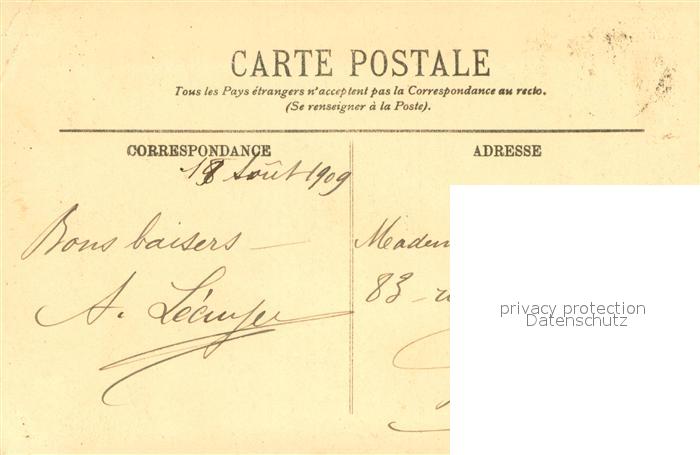 CARTE POSTALE
Tous les Pays étrangers n'acceptent pas la Correspondance au recto.
(Se renseigner à la Poste).
CORRESPONDANCE
ADRESSE
18 Août 1909
Bons baisers —
A. Lécuyer
Madem
83 -
privacy protection
Datenschutz